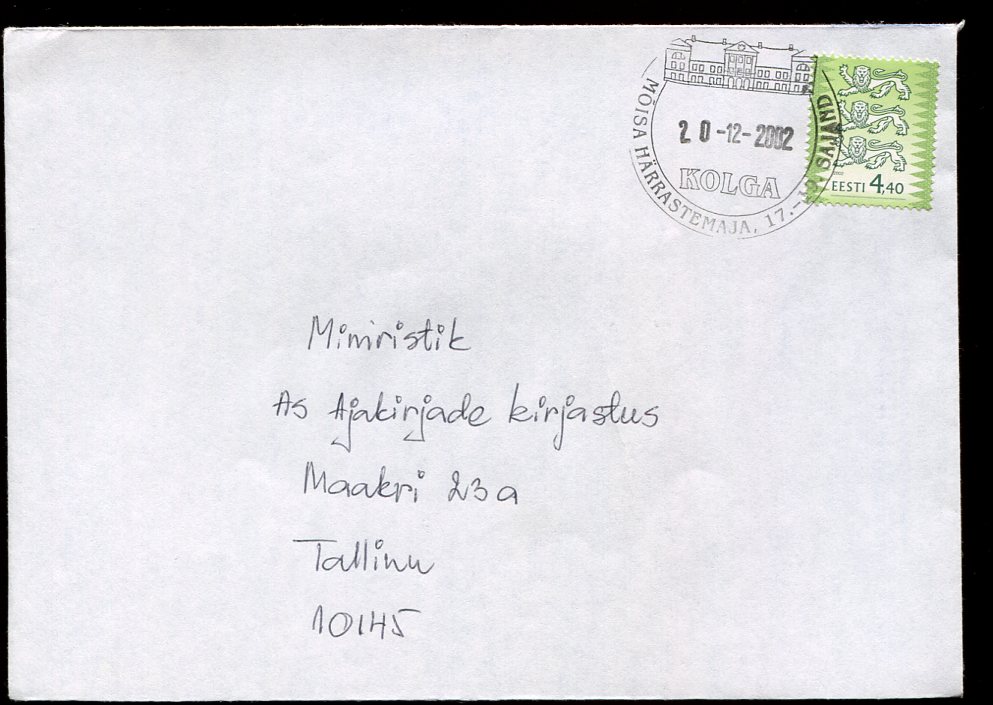 MÕISA HÄRRASTEMAJA, 17.-19. SAJAND
20-12-2002
KOLGA
EESTI 4,40
Miniristik
As Ajakirjade kirjastus
Maakri 23a
Tallinn
10145